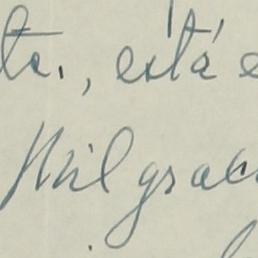 te., está e
Mil grac